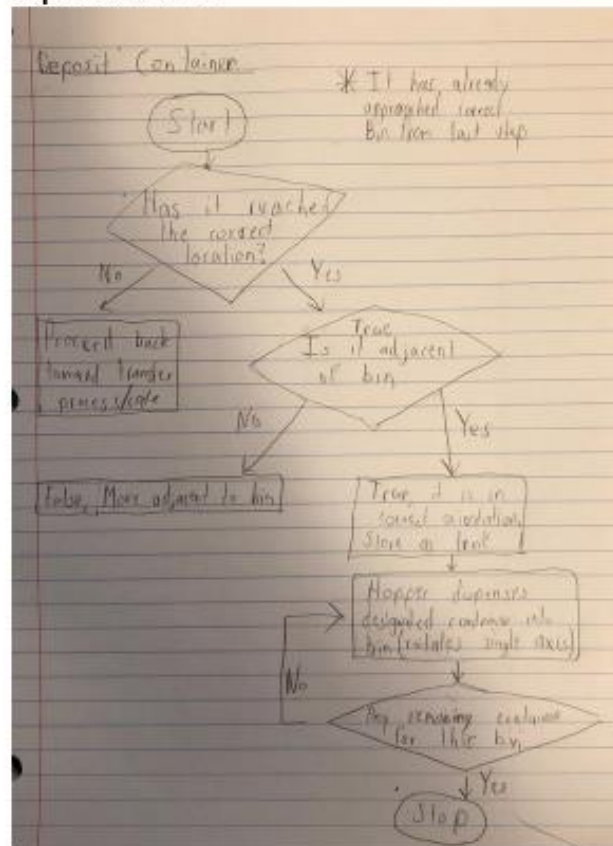 Deposit Container
* It has already
approached correct
Bin from last step
Start
Has it reached
the correct
location?
No
Yes
Proceed back
toward transfer
process/code
True
Is it adjacent
of bin
No
Yes
False, Move adjacent to bin
True, it is in
correct orientation,
Store as true
Hopper dispenses
designated container into
bin (rotates single axis)
No
Any remaining container
for this bin
Yes
Stop